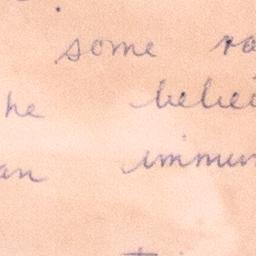 some ra
he belie
an immun